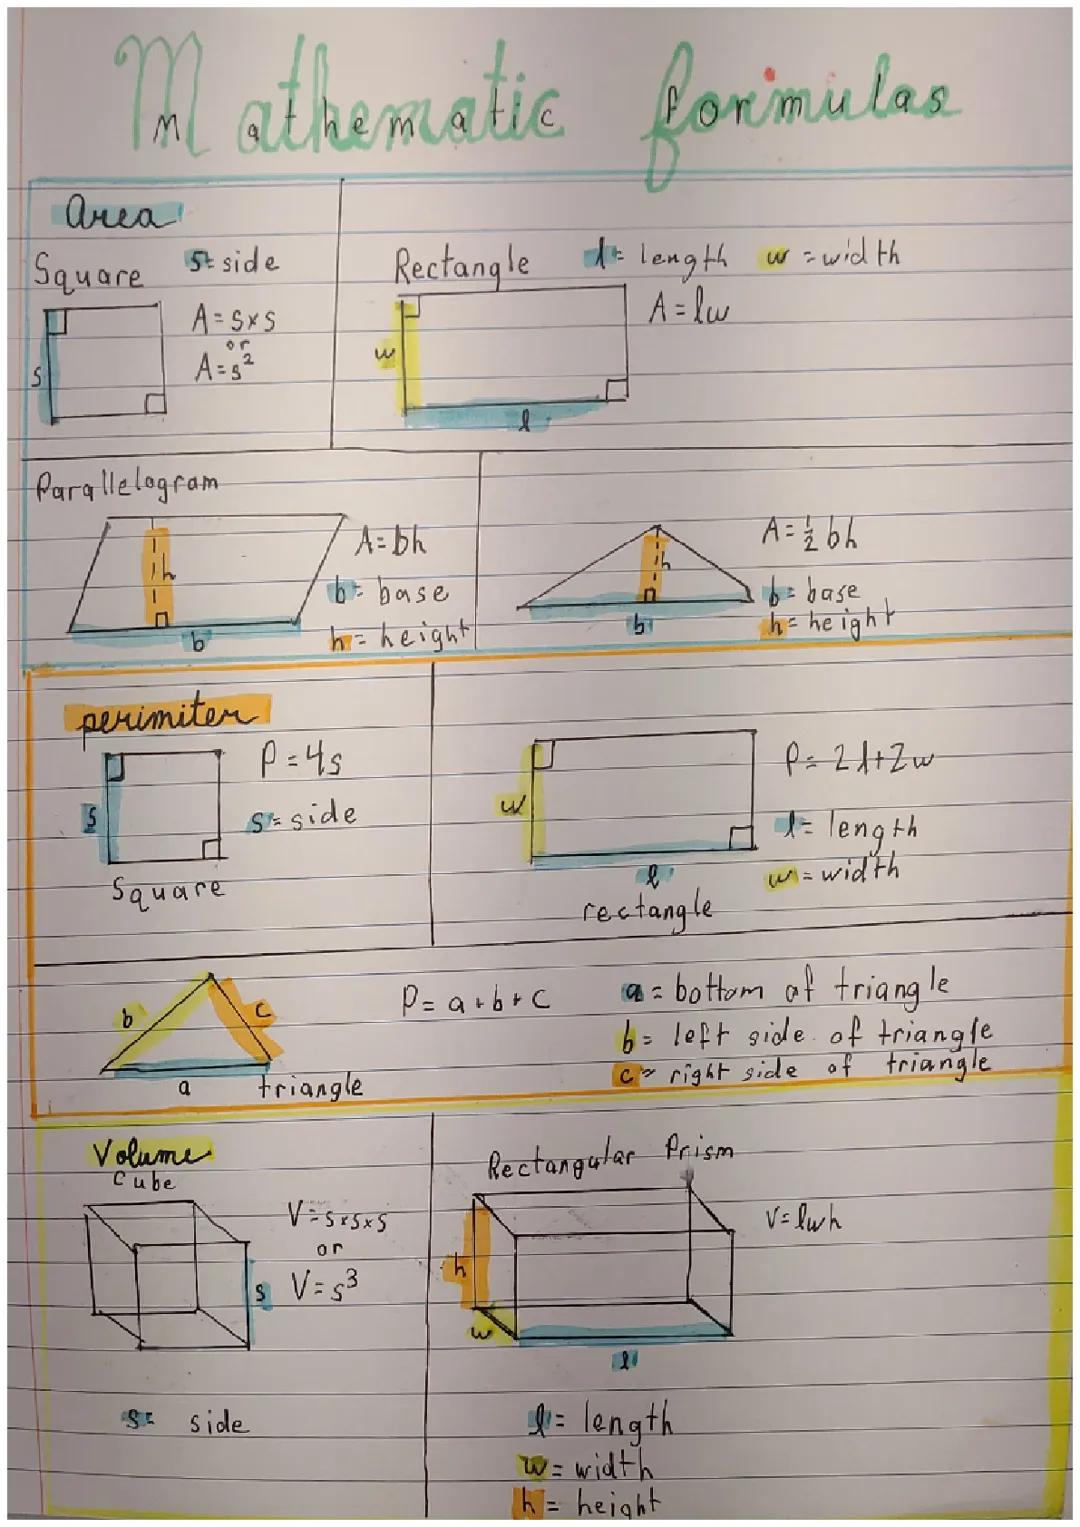 Mathematic formulas
Area
Square
s = side
s
A = s×s
or
A = s²
Rectangle
l = length
w = width
w
l
A = lw
Parallelogram
h
b
A = bh
b = base
h = height
h
b
A = ½ bh
b = base
h = height
perimiter
s
P = 4s
s = side
Square
w
l
rectangle
P = 2l+2w
l = length
w = width
b
c
a
triangle
P = a+b+c
a = bottom of triangle
b = left side of triangle
c = right side of triangle
Volume
Cube
s
V = s×s×s
or
V = s³
s = side
Rectangular Prism
h
w
l
V = lwh
l = length
w = width
h = height